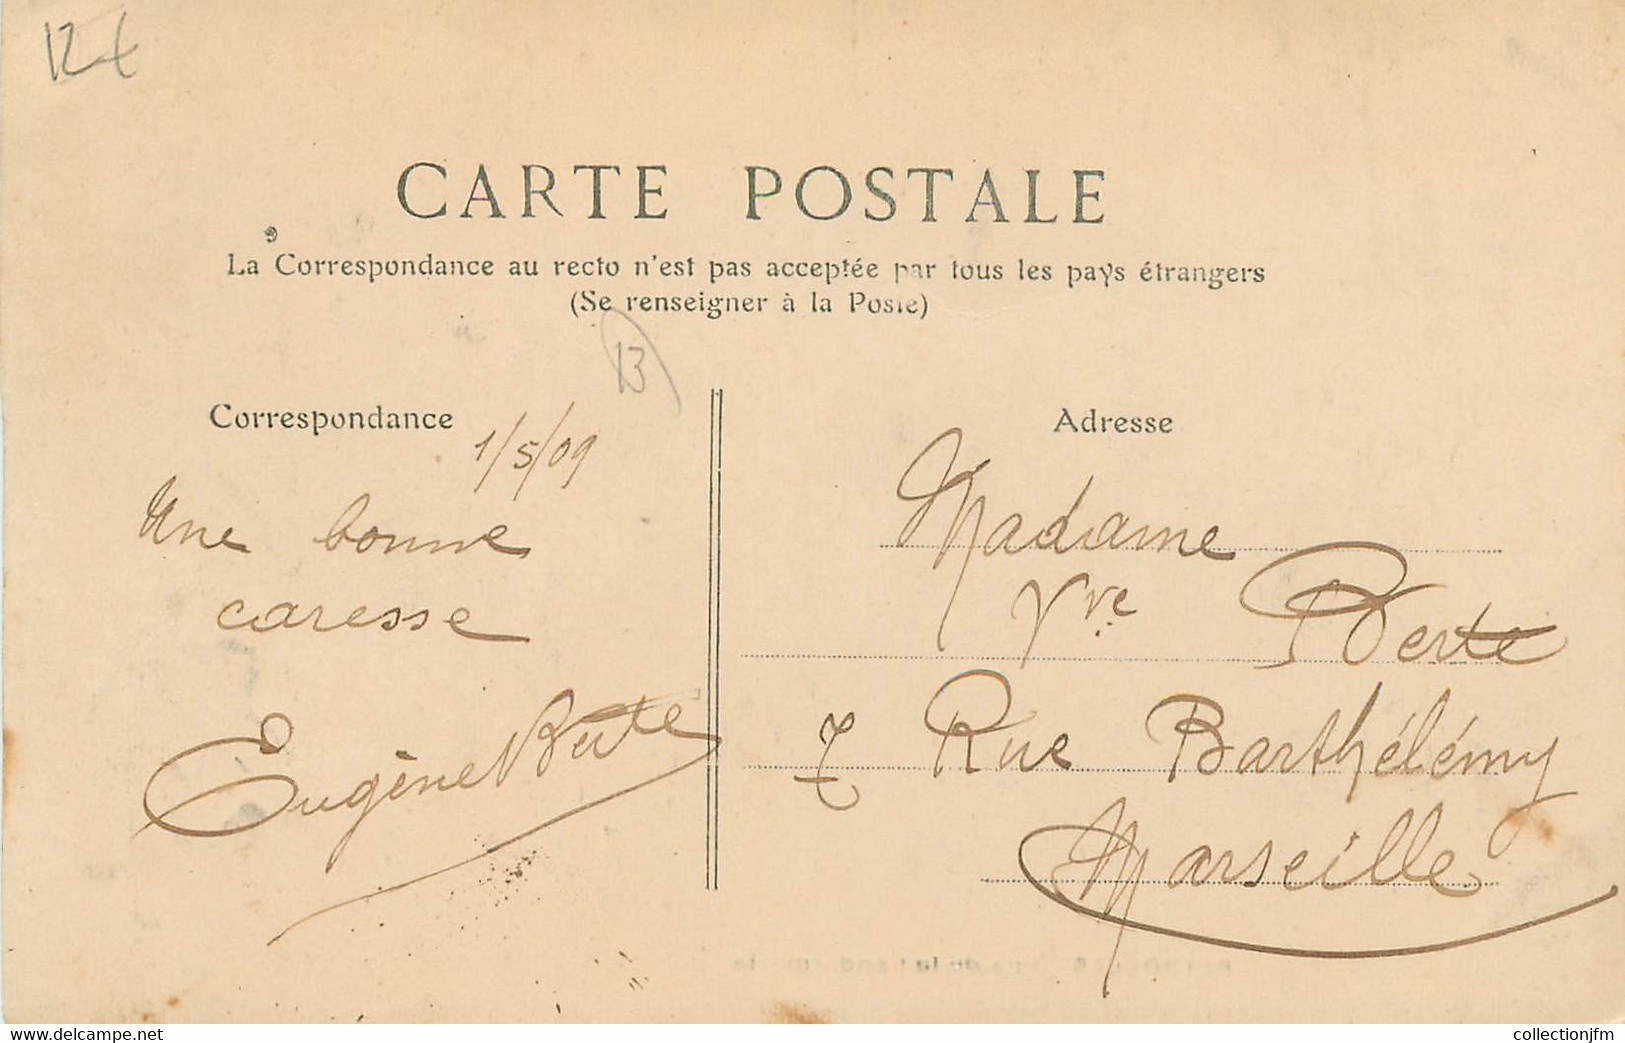 12€
CARTE POSTALE
La Correspondance au recto n'est pas acceptée par tous les pays étrangers
(Se renseigner à la Poste)
13
Correspondance
1/5/09
Une bonne
caresse
Eugène
Adresse
Madame
Vve
7 Rue Barthélémy
Marseille
delcampe.net
collectionjfm